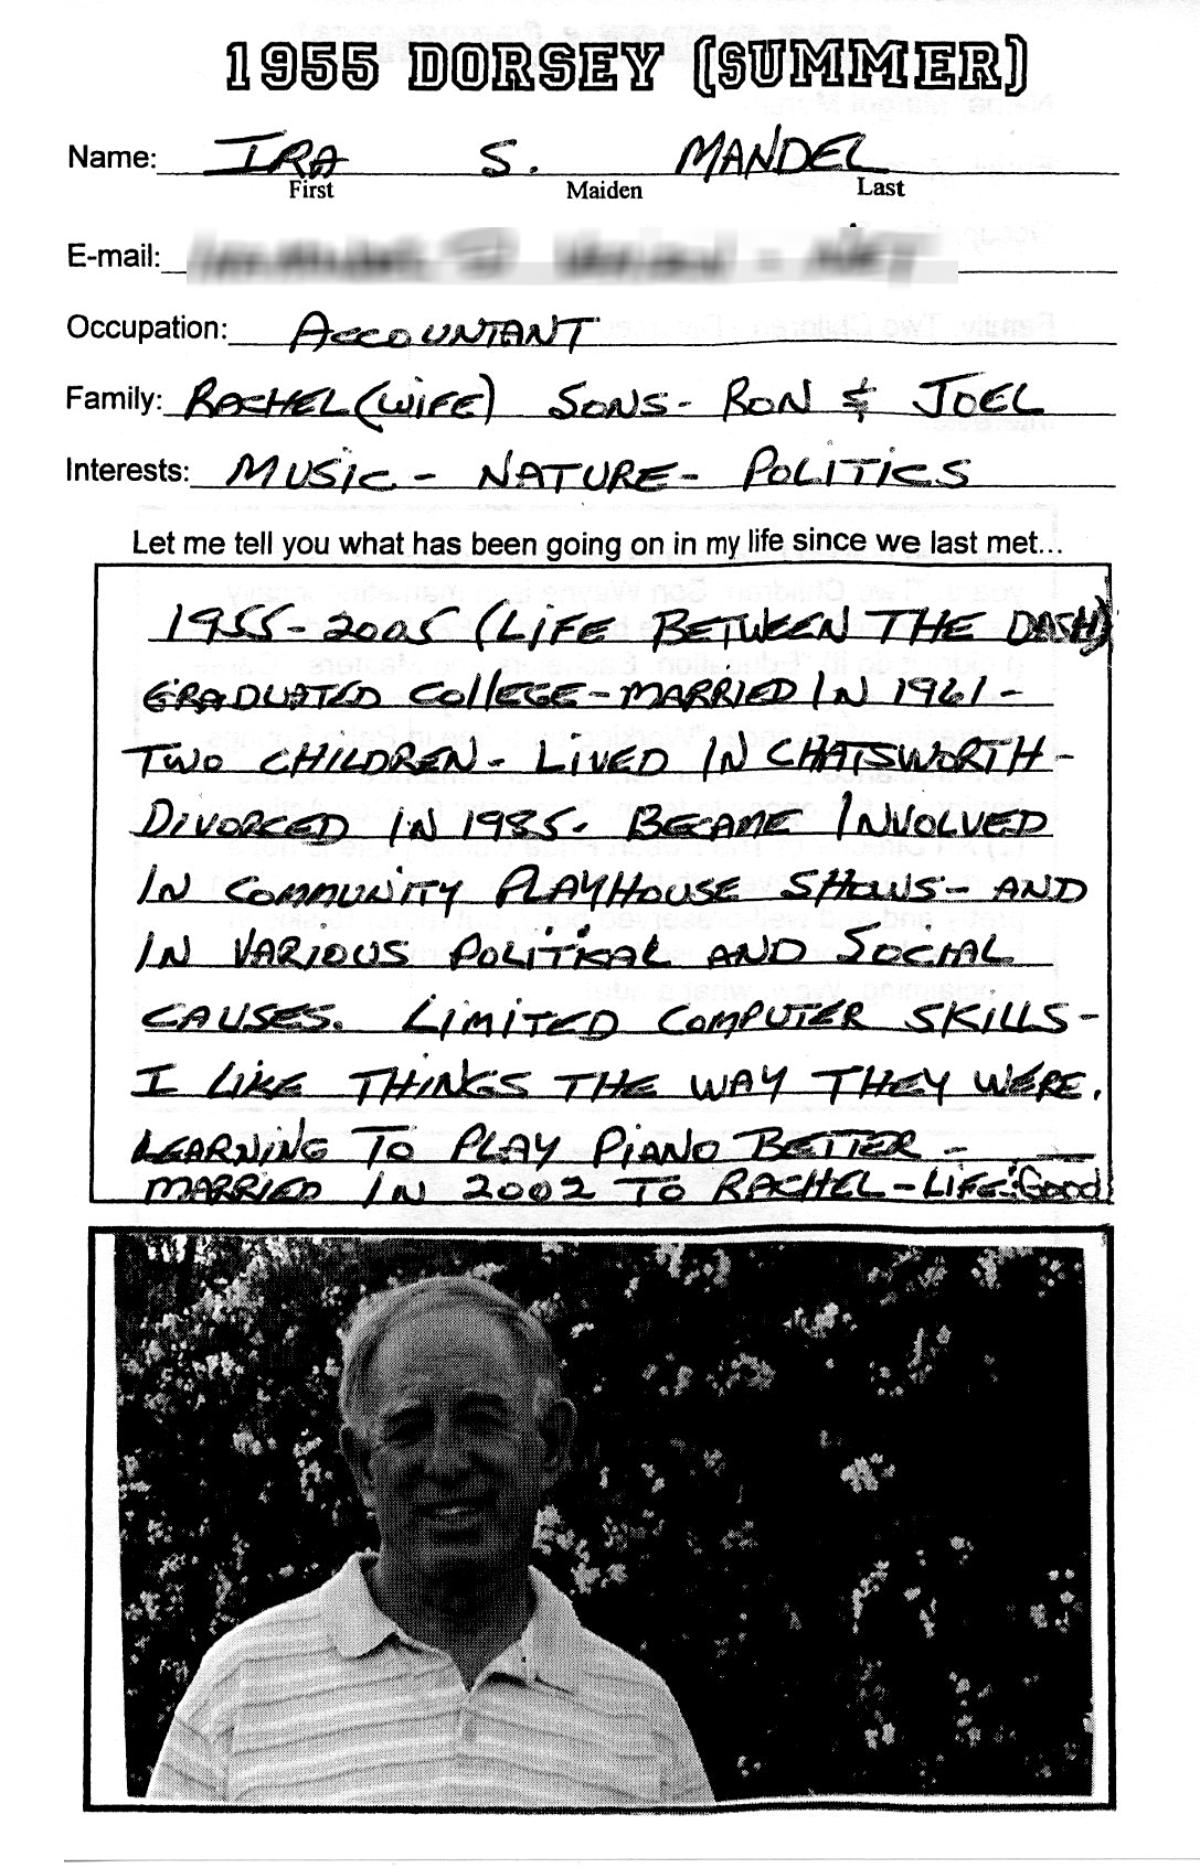 1955 DORSEY (SUMMER)
Name: IRA S. MANDEL
First Maiden Last
E-mail:
Occupation: ACCOUNTANT
Family: RACHEL (WIFE) SONS- RON & JOEL
Interests: MUSIC - NATURE - POLITICS
Let me tell you what has been going on in my life since we last met...
1955-2005 (LIFE BETWEEN THE DASH)
GRADUATED COllEGE - MARRIED IN 1961 -
TWO CHILDREN - LIVED IN CHATSWORTH -
DIVORCED IN 1985. BECAME INVOLVED
IN COMMUNITY PLAYHOUSE SHOWS - AND
IN VARIOUS POLITICAL AND SOCIAL
CAUSES. LIMITED COMPUTER SKILLS -
I LIKE THINGS THE WAY THEY WERE.
LEARNING TO PLAY PIANO BETTER -
MARRIED IN 2002 TO RACHEL - LIFE: Good